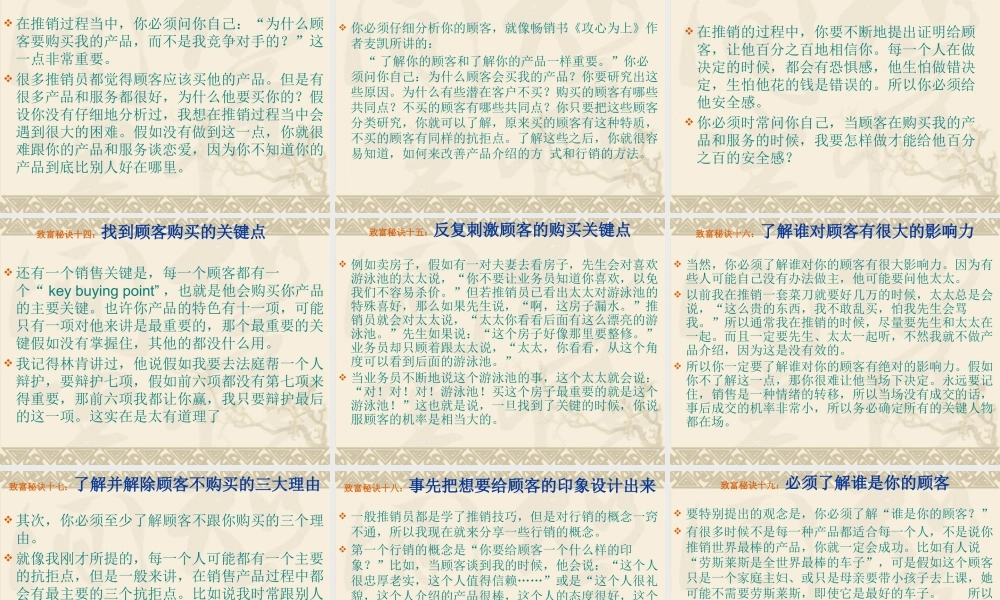 在推销过程当中，你必须问你自己：“为什么顾
客要购买我的产品，而不是我竞争对手的？”这
一点非常重要。
很多推销员都觉得顾客应该买他的产品。但是有
很多产品和服务都很好，为什么他要买你的？假
设你没有仔细地分析过，我想在推销过程当中会
遇到很大的困难。假如没有做到这一点，你就很
难跟你的产品和服务谈恋爱，因为你不知道你的
产品到底比别人好在哪里。
你必须仔细分析你的顾客，就像畅销书《攻心为上》作
者麦凯所讲的：
“ 了解你的顾客和了解你的产品一样重要。”你必
须问你自己：为什么顾客会买我的产品？你要研究出这
些原因。为什么有些潜在客户不买？购买的顾客有哪些
共同点？不买的顾客有哪些共同点？你只要把这些顾客
分类研究，你就可以了解，原来买的顾客有这种特质，
不买的顾客有同样的抗拒点。了解这些之后，你就很容
易知道，如何来改善产品介绍的方 式和行销的方法。
在推销的过程中，你要不断地提出证明给顾
客，让他百分之百地相信你。每一个人在做
决定的时候，都会有恐惧感，他生怕做错决
定，生怕他花的钱是错误的。所以你必须给
他安全感。
你必须时常问你自己，当顾客在购买我的产
品和服务的时候，我要怎样做才能给他百分
之百的安全感？
致富秘诀十四：找到顾客购买的关键点
还有一个销售关键是，每一个顾客都有一
个“ key buying point” ，也就是他会购买你产品
的主要关键。也许你产品的特色有十一项，可能
只有一项对他来讲是最重要的，那个最重要的关
键假如没有掌握住，其他的都没什么用。
我记得林肯讲过，他说假如我要去法庭帮一个人
辩护，要辩护七项，假如前六项都没有第七项来
得重要，那前六项我都让你赢，我只要辩护最后
的这一项。这实在是太有道理了
致富秘诀十五：反复刺激顾客的购买关键点
例如卖房子，假如有一对夫妻去看房子，先生会对喜欢
游泳池的太太说，“你不要让业务员知道你喜欢，以免
我们不容易杀价。”但若推销员已看出太太对游泳池的
特殊喜好，那么如果先生说，“啊，这房子漏水。”推
销员就会对太太说，“太太你看看后面有这么漂亮的游
泳池。”先生如果说：“这个房子好像那里要整修。”
业务员却只顾着跟太太说，“太太，你看看，从这个角
度可以看到后面的游泳池。”
当业务员不断地说这个游泳池的事，这个太太就会说：
“对！对！对！游泳池！买这个房子最重要的就是这个
游泳池！”这也就是说，一旦找到了关键的时候，你说
服顾客的机率是相当大的。
致富秘诀十六：了解谁对顾客有很大的影响力
当然，你必须了解谁对你的顾客有很大影响力。因为有
些人可能自己没有办法做主，他可能要问他太太。
以前我在推销一套菜刀就要好几万的时候，太太总是会
说，“这么贵的东西，我不敢乱买，怕我先生会骂
我。”所以通常我在推销的时候，尽量要先生和太太在
一起。而且一定要先生、太太一起听，不然我就不做产
品介绍，因为这是没有效的。
所以你一定要了解谁对你的顾客有绝对的影响力。假如
你不了解这一点，那你很难让他当场下决定。永远要记
住，销售是一种情绪的转移，所以当场没有成交的话，
事后成交的机率非常小，所以务必确定所有的关键人物
都在场。
致富秘诀十七：了解并解除顾客不购买的三大理由
其次，你必须至少了解顾客不跟你购买的三个理
由。
就像我刚才所提的，每一个人可能都有一个主要
的抗拒点，但是一般来讲，在销售产品过程中都
会有最主要的三个抗拒点。比如说我时常跟别人
致富秘诀十八：事先把想要给顾客的印象设计出来
一般推销员都是学了推销技巧，但是对行销的概念一窍
不通，所以我现在就来分享一些行销的概念。
第一个行销的概念是“你要给顾客一个什么样的印
象？”比如，当顾客谈到我的时候，他会说：“这个人
很忠厚老实，这个人值得信赖……”或是“这个人很礼
貌，这个人介绍的产品很棒，这个人的态度很好，这个
致富秘诀十九：必须了解谁是你的顾客
要特别提出的观念是，你必须了解“谁是你的顾客？”
有很多时候不是每一种产品都适合每一个人，不是说你
推销世界最棒的产品，你就一定会成功。比如有人说
“劳斯莱斯是全世界最棒的车子”，可是假如这个顾客
只是一个家庭主妇、或只是母亲要带小孩子去上课，她
可能不需要劳斯莱斯，即使它是最好的车子。 所以